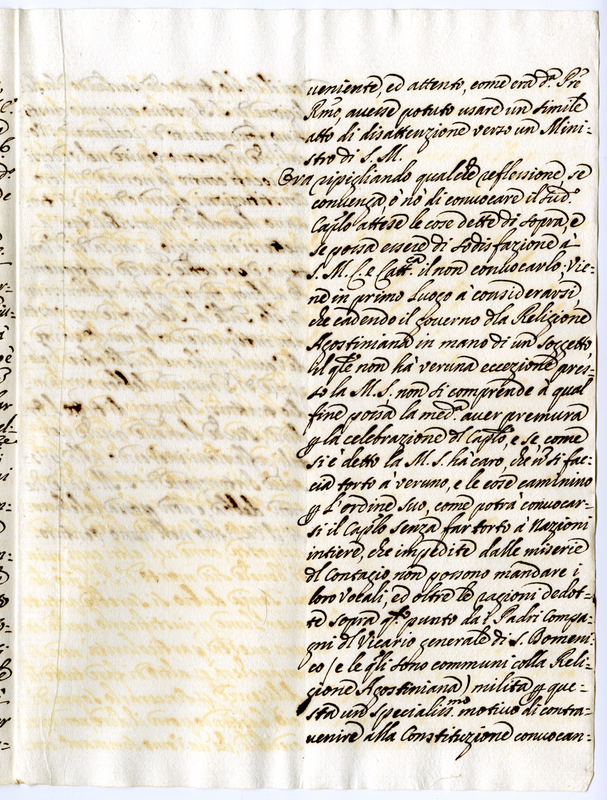 veniente, ed attento, come era d.º Pre
Rmo, avesse potuto usare un simile
atto di disattenzione verso un Mini-
stro di S. M.
Ora ripigliando qualche reflessione se
convenga ò nò di convocare il Sud.º
Caplo attese le cose dette di sopra, e
se possa essere di sodisfazione à
S. M. C. e Catt.ca il non convocarlo: Vie-
ne in primo luogo à considerarsi,
che cadendo il governo dla Religione
Agostiniana in mano di un soggetto
il qle non hà veruna eccezione pres-
so la M. S. non si comprende à qual
fine possa la med.ª aver premura
p la celebrazione dl Caplo, e se come
si è detto la M. S. hà caro, che ñ si fac-
cia torto à veruno, e le cose caminino
p l'ordine suo, come potrà convocar-
si il Caplo senza far torto à Nazioni
intiere, che impedite dalle miserie
dl Contagio non possono mandare i
loro Vocali, ed oltre le ragioni dedot-
te sopra qto punto da i Padri Compa-
gni dl Vicario generale di S. Domeni-
co (e le qli sono communi colla Reli-
gione Agostiniana) milita p que-
sta un specialiss.mo motivo di contra-
venire alla Constituzione convocan-